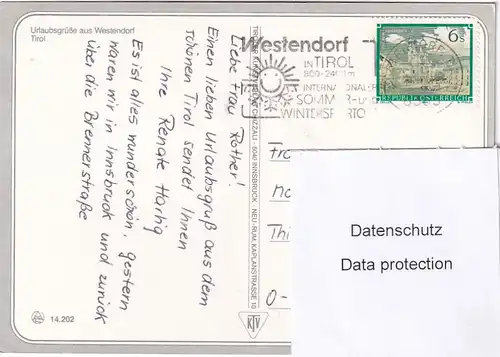 Urlaubsgrüße aus Westendorf
Tirol
Liebe Frau Rother!
Einen lieben Urlaubsgruß aus dem
schönen Tirol sendet Ihnen
Ihre Renate Hartig
Es ist alles wunderschön, gestern
waren wir in Innsbruck und zurück
über die Brennerstraße
14.202
TIROLER KUNSTVERLAG CHIZZALI - 6040 INNSBRUCK - NEU-RUM, KAPLANSTRASSE 10
KTV
Westendorf
IN TIROL
800-
INTERNATIONALER
SOMMER- u
WINTERSPORTO
6 S
REPUBLIK ÖSTERREICH
Fr
Thi
O-
Datenschutz
Data protection